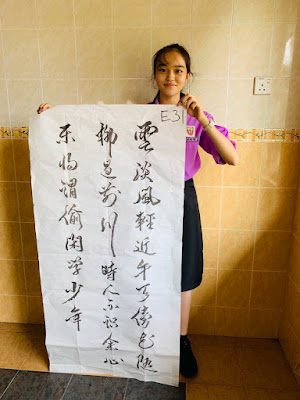 E31
雲淡風輕近午天傍花隨
柳過前川時人不識余心
樂將謂偷閑學少年